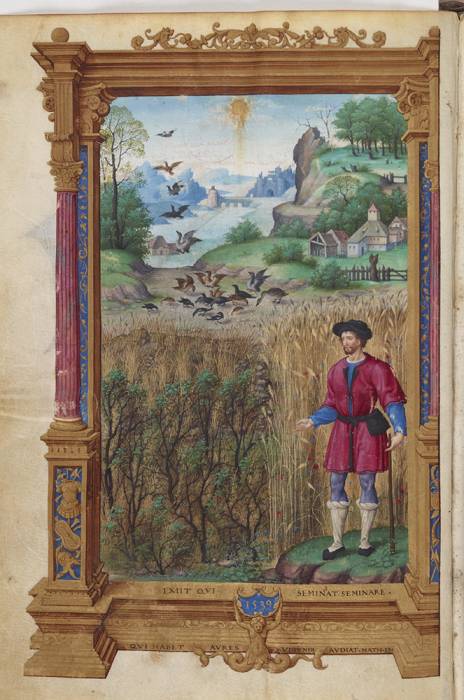 EXIIT QVI SEMINAT SEMINARE
1539
QVI HABET AVRES AVDIAT